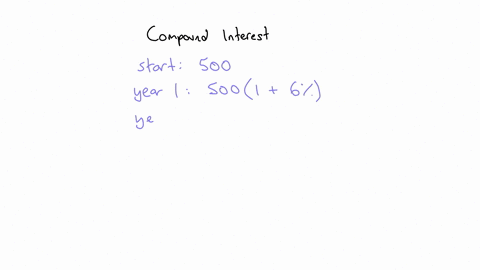 Compound Interest
start: 500
year 1: 500(1 + 6%)
ye